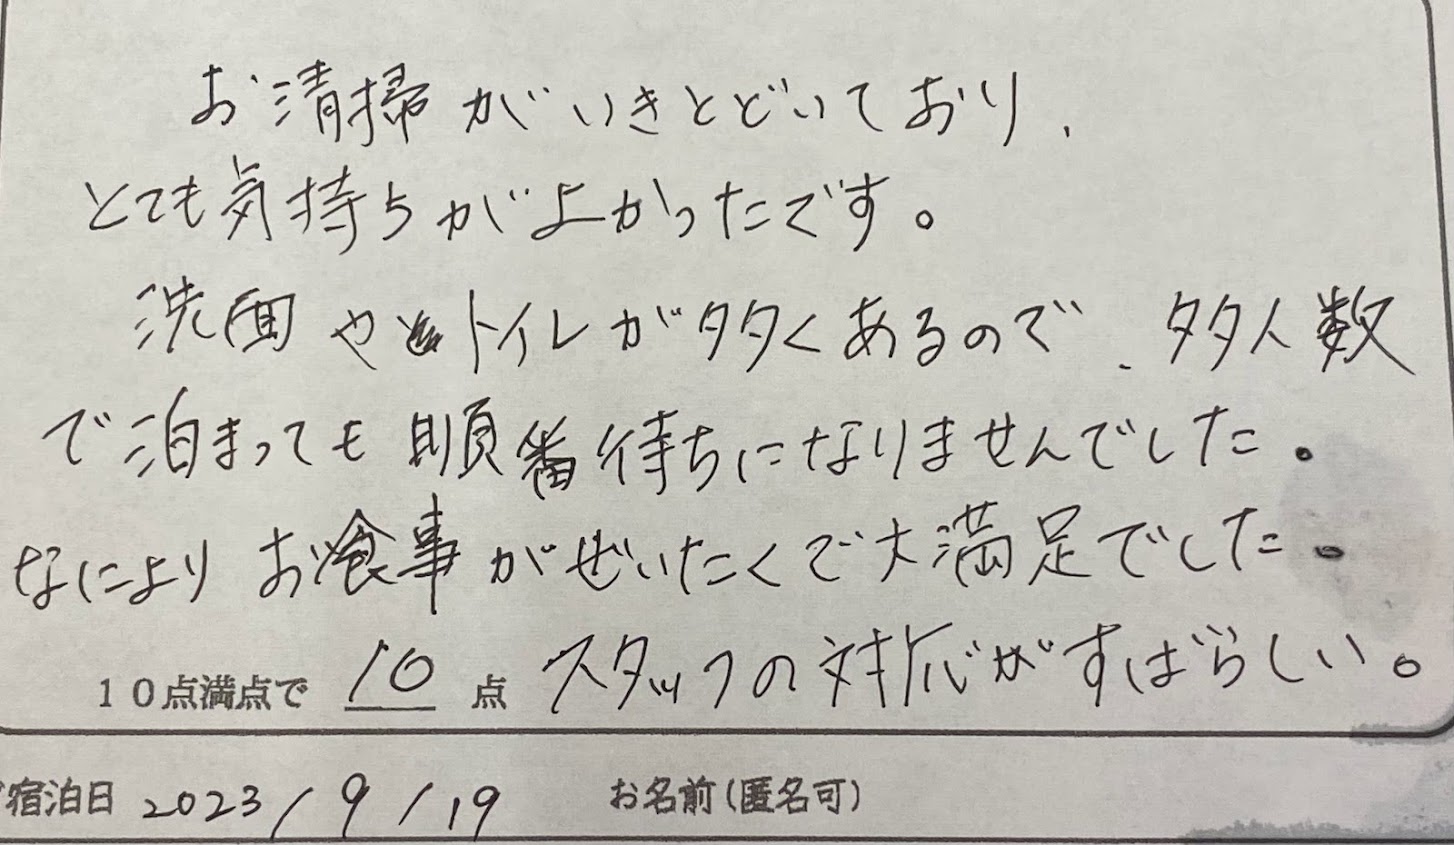 お清掃がいきとどいており、
とても気持ちがよかったです。
洗面やトイレが多くあるので、多人数
で泊まっても順番待ちになりませんでした。
なによりお食事がぜいたくで大満足でした。
10点満点で 10 点 スタッフの対応がすばらしい。
宿泊日 2023/9/19 お名前(匿名可)